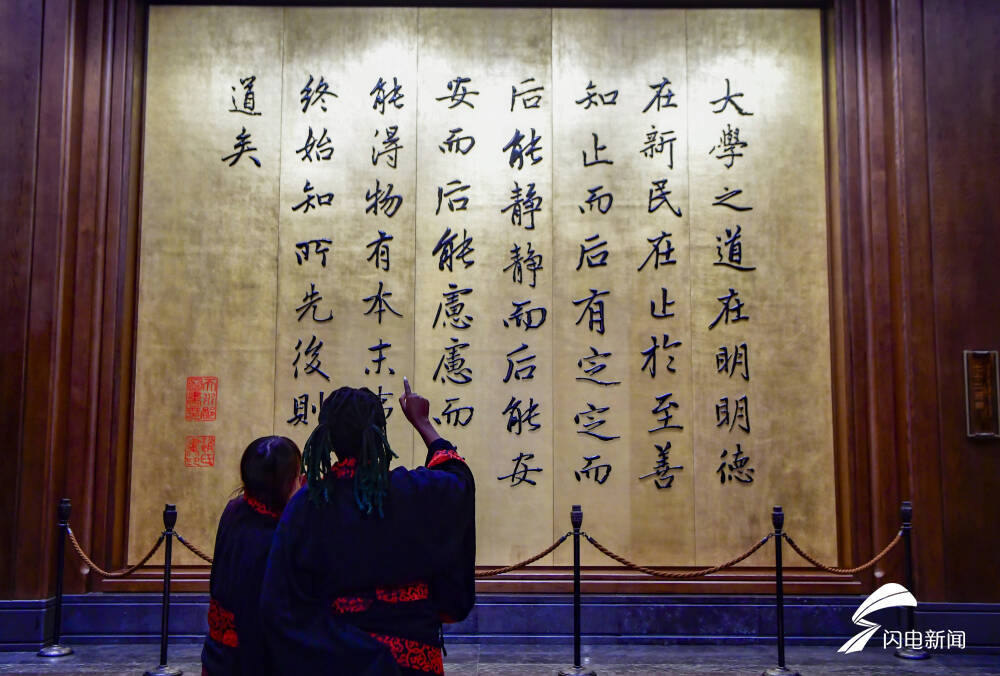 大學之道在明明德
在新民在止於至善
知止而后有定定而
后能静静而后能安
安而后能慮慮而
能得物有本末
終始知所先後則
道矣
闪电新闻